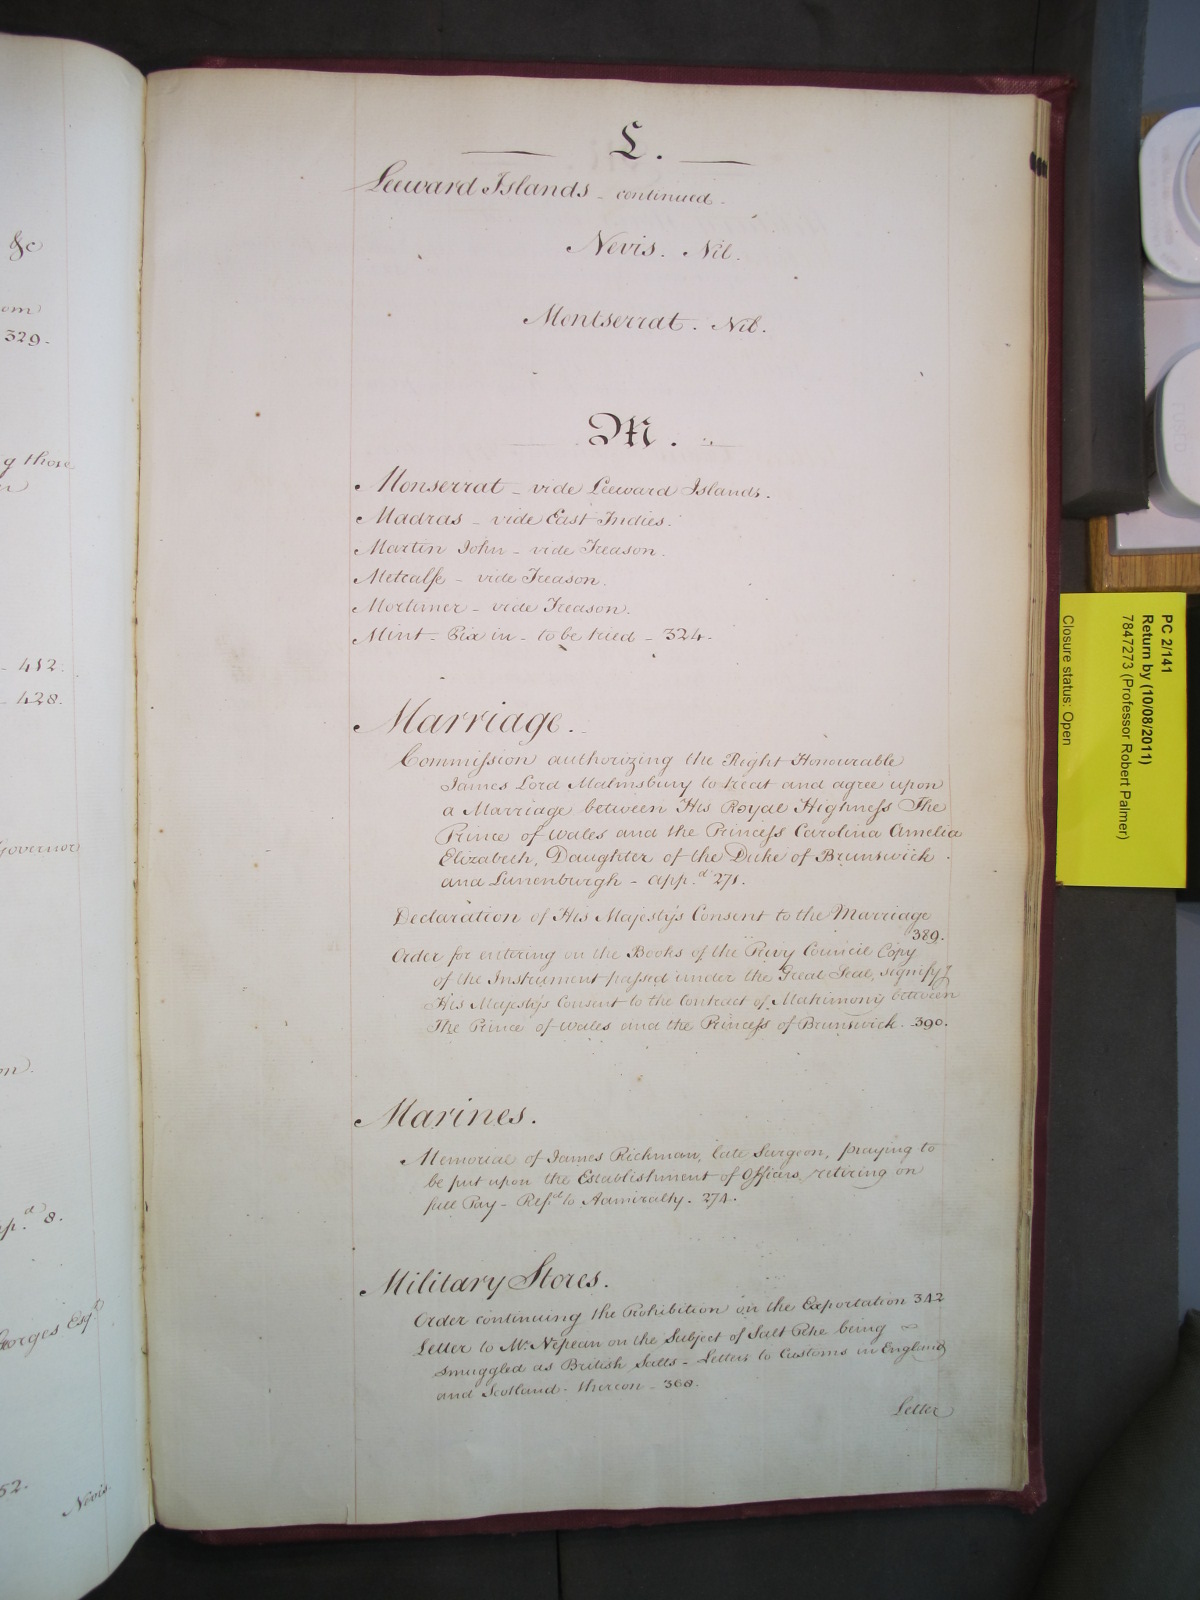 &c
om
329.
g those
412.
428.
Governor
on.
pp.d 8.
Georges Esqr
52.
Nevis
L.
Leeward Islands - continued.
Nevis. Nil.
Montserrat. Nil.
M.
Monserrat - vide Leeward Islands.
Madras - vide East Indies.
Martin John - vide Treason.
Metcalfe - vide Treason.
Mortimer - vide Treason.
Mint - Pix in - to be tried - 324.
Marriage.
Commission authorizing the Right Honourable
James Lord Malmsbury to treat and agree upon
a Marriage between His Royal Highness The
Prince of Wales and the Princess Carolina Amelia
Elizabeth, Daughter of the Duke of Brunswick
and Lunenburgh - app.d 271.
Declaration of His Majesty's Consent to the Marriage
389.
Order for entering on the Books of the Privy Council Copy
of the Instrument passed under the Great Seal, signify.g
His Majesty's Consent to the Contract of Matrimony between
The Prince of Wales and the Princess of Brunswick. 390.
Marines.
Memorial of James Rickman, late Surgeon, praying to
be put upon the Establishment of Officers retiring on
full Pay - Ref.d to Admiralty. 274.
Military Stores.
Order continuing the Prohibition on the Exportation 342
Letter to Mr Nepean on the Subject of Salt Petre being
smuggled as British Salts - Letters to Customs in England
and Scotland - thereon - 368.
Letter
PC 2/141
Return by (10/08/2011)
7847273 (Professor Robert Palmer)
Closure status: Open